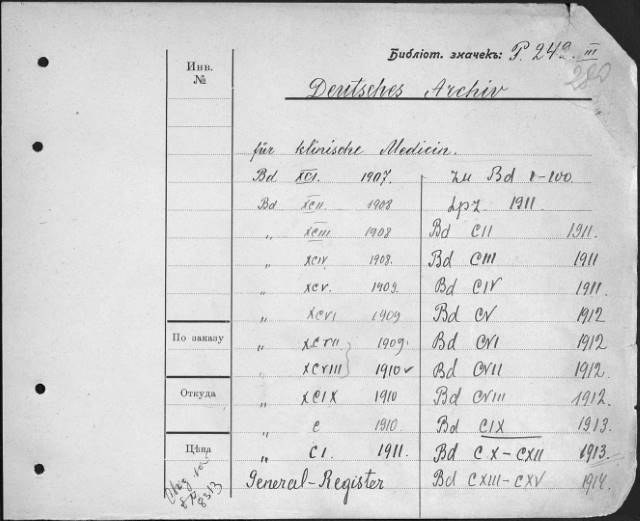 Библіот. значекъ: P. 24a III
280
Инв.
№
Deutsches Archiv
für klinische Medicin.
Bd XCI. 1907.
Bd XCII. 1908
„ XCIII 1908
„ XCIV 1908.
„ XCV. 1909.
„ XCVI 1909
„ XCVII 1909.
„ XCVIII 1910
„ XCIX 1910
„ C 1910
„ CI. 1911.
General-Register
zu Bd 1-100.
Lpz 1911.
Bd CII 1911.
Bd CIII 1911
Bd CIV 1911.
Bd CV 1912
Bd CVI 1912.
Bd CVII 1912.
Bd CVIII 1912.
Bd CIX 1913.
Bd CX-CXII 1913.
Bd CXIII-CXV 1914.
По заказу
Откуда
Цѣна
8313